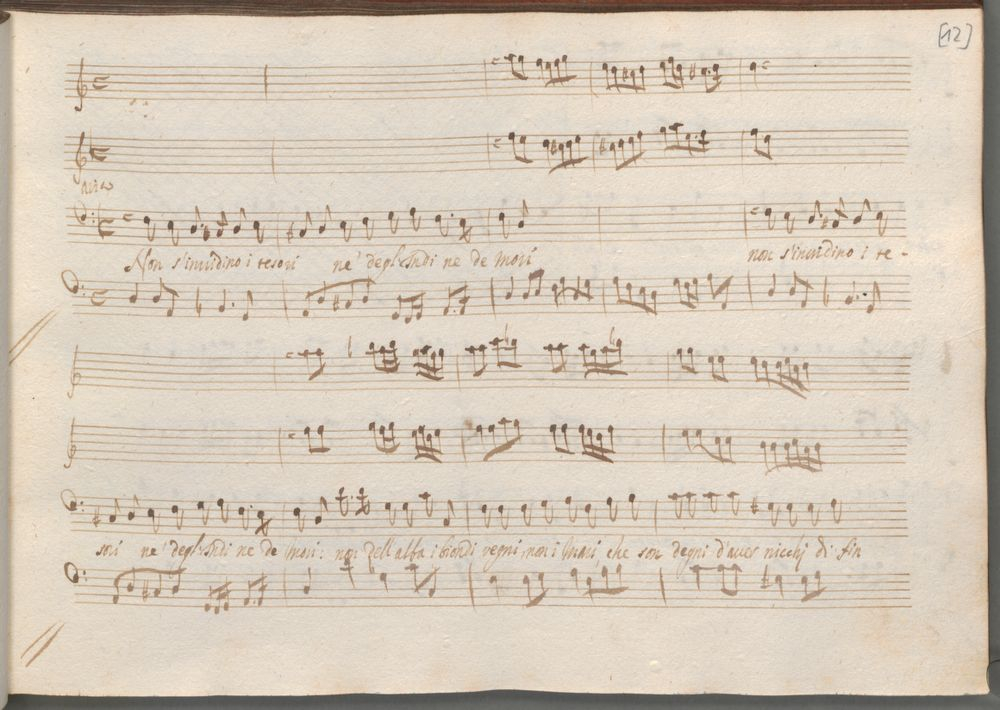 [12]
aria
Non s'invidino i tesori ne' degl'Indi ne de Mori non s'invidino i te-
sori ne' degl'Indi ne de Mori: non dell'alba i biondi regni, non i Mari, che son degni d'aver nicchj di fin